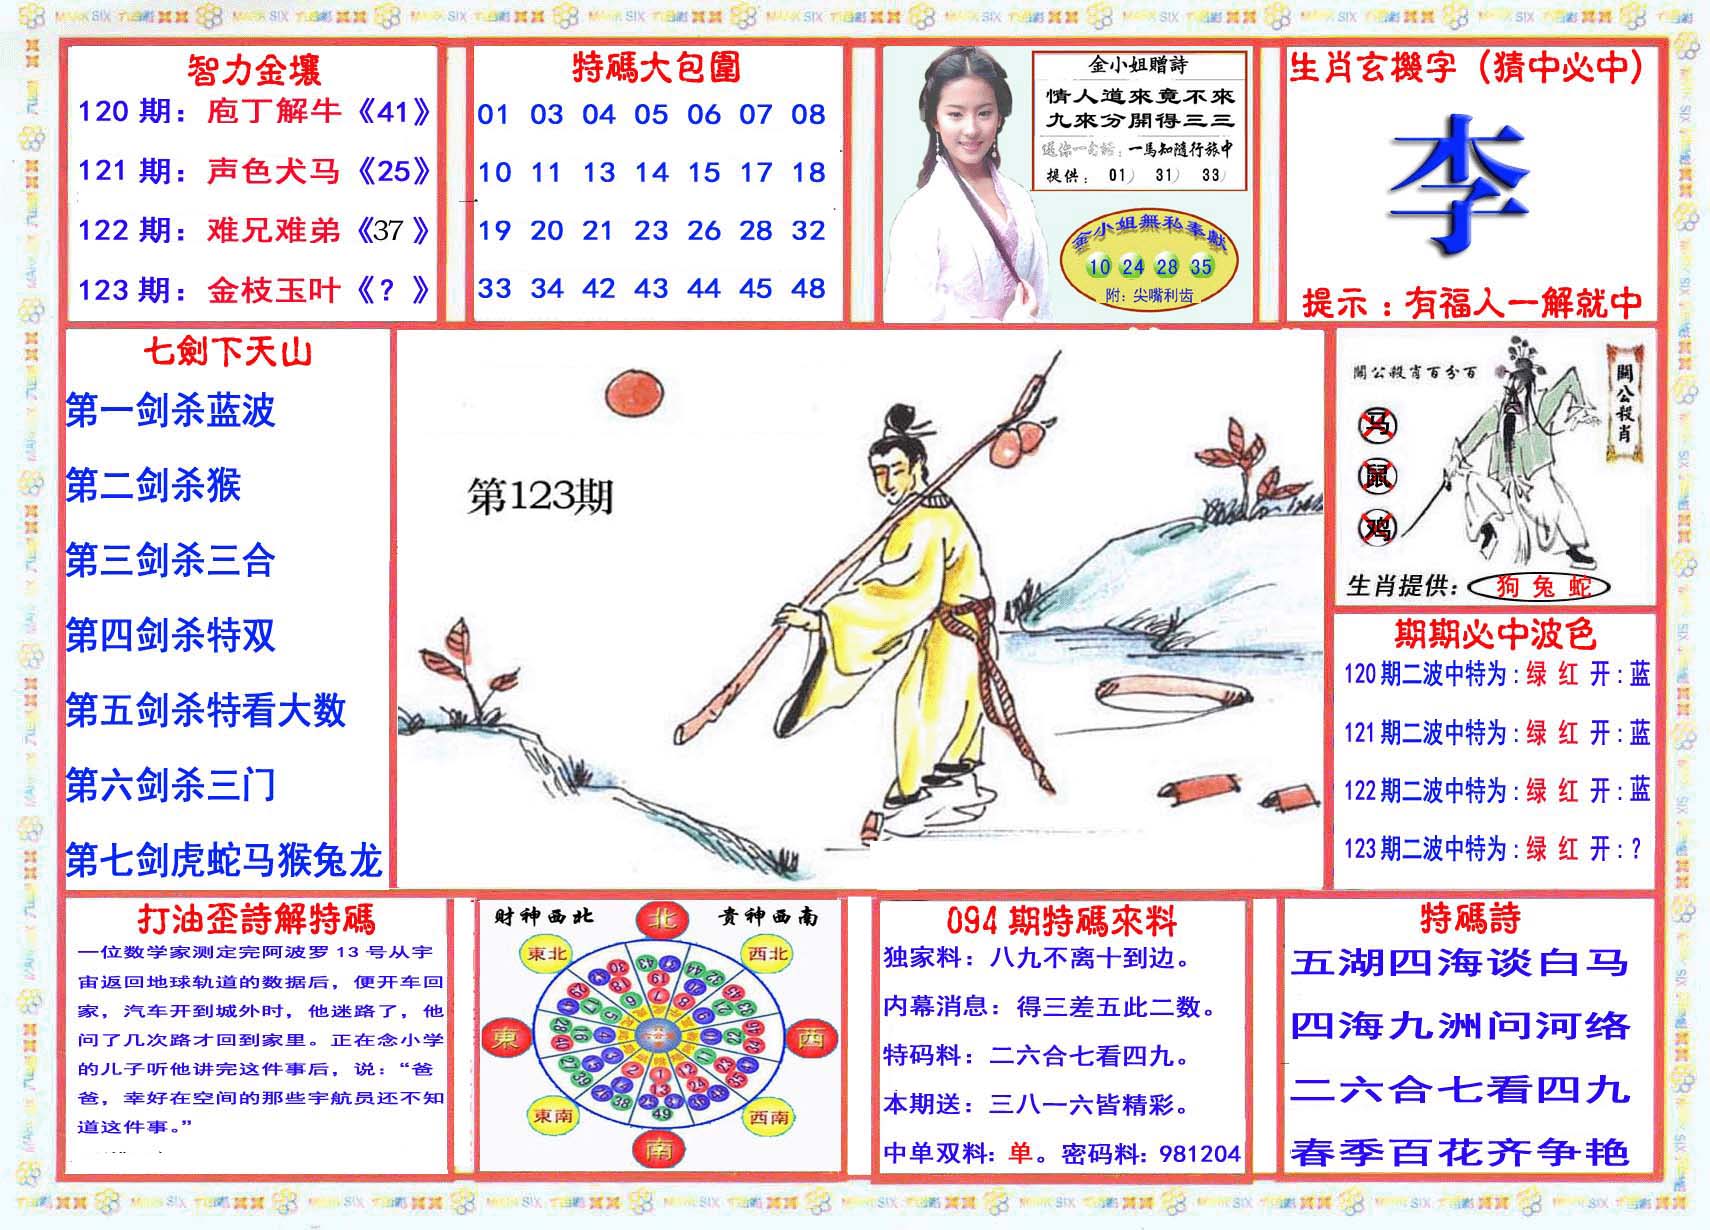 智力金壤
120 期：庖丁解牛《41》
121 期：声色犬马《25》
122 期：难兄难弟《37 》
123 期：金枝玉叶《？》
特碼大包圍
01 03 04 05 06 07 08
10 11 13 14 15 17 18
19 20 21 23 26 28 32
33 34 42 43 44 45 48
金小姐贈詩
情人道來竟不來
九來分開得三三
送你一句話：一馬知隨行旅中
提供： 01） 31） 33）
金小姐無私奉獻
10 24 28 35
附：尖嘴利齿
生肖玄機字（猜中必中）
李
提示：有福人一解就中
七劍下天山
第一剑杀蓝波
第二剑杀猴
第三剑杀三合
第四剑杀特双
第五剑杀特看大数
第六剑杀三门
第七剑虎蛇马猴兔龙
第123期
關公殺肖百分百
關公殺肖
马
鼠
鸡
生肖提供：狗 兔 蛇
期期必中波色
120期二波中特为：绿 红 开：蓝
121期二波中特为：绿 红 开：蓝
122期二波中特为：绿 红 开：蓝
123期二波中特为：绿 红 开：？
打油歪詩解特碼
一位数学家测定完阿波罗 13 号从宇
宙返回地球轨道的数据后，便开车回
家，汽车开到城外时，他迷路了，他
问了几次路才回到家里。正在念小学
的儿子听他讲完这件事后，说：“爸
爸，幸好在空间的那些宇航员还不知
道这件事。”
財神西北
貴神西南
北
東北
西北
東
西
東南
西南
南
094 期特碼來料
独家料：八九不离十到边。
内幕消息：得三差五此二数。
特码料：二六合七看四九。
本期送：三八一六皆精彩。
中单双料：单。密码料：981204
特碼詩
五湖四海谈白马
四海九洲问河络
二六合七看四九
春季百花齐争艳